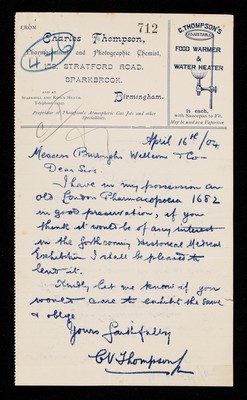 FROM
712
Charles Thompson,
Pharmaceutical and Photographic Chemist,
159, STRATFORD ROAD,
SPARKBROOK,
Birmingham.
Proprietor of Thompson's Atmospheric Gas fires and other
Specialities.
C. THOMPSON'S
ADJUSTABLE
FOOD WARMER
&
WATER HEATER
1s. each,
with Saucepan to Fit.
May be used as a Vaporizer
April 16th /04
Messrs Burroughs Wellcome & Co
Dear Sirs.
I have in my possession an
old London Pharmacopoeia 1682
in good preservation, if you
think it would be of any interest
in the forthcoming Historical Medical
Exhibition I shall be pleased to
lend it.
Kindly let me know if you
would care to exhibit the same
& oblige
Yours faithfully
C V Thompson